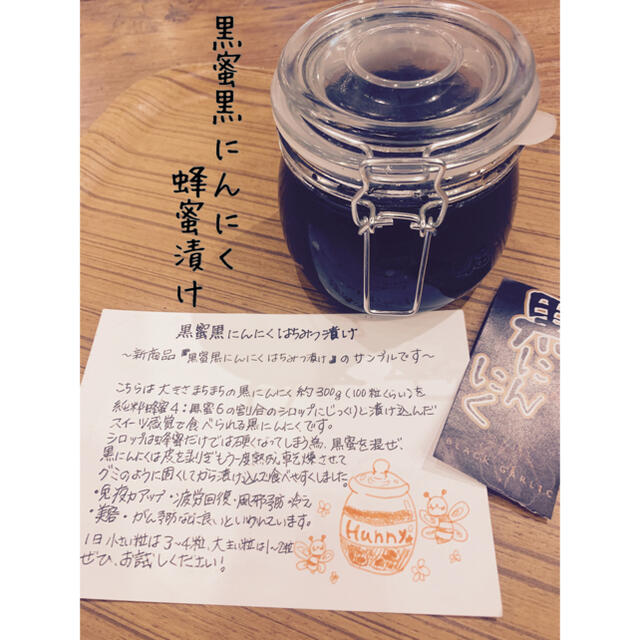 黒蜜黒にんにく
蜂蜜漬け
黒蜜黒にんにくはちみつ漬け
~新商品『黒蜜黒にんにくはちみつ漬け』のサンプルです~
こちらは大きさまちまちの黒にんにく約300g(100粒くらい)を
純粋蜂蜜4:黒蜜6の割合のシロップにじっくりと漬け込んだ
スイーツ感覚で食べられる黒にんにくです。
シロップは蜂蜜だけでは硬くなってしまう為、黒蜜を混ぜ、
黒にんにくは皮を剥きもう一度熟成、乾燥させて
グミのように固くしてから漬け込んで食べやすくしました。
・免疫力アップ・疲労回復・風邪予防・冷え
・美容・がん予防などに良いといわれています。
1日小さい粒は3~4粒、大きい粒は1~2粒
ぜひ、お試しください!
Hunny
黒にん
にく
BLACK GARLIC